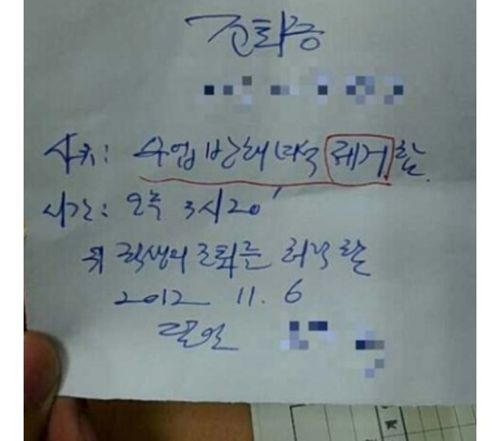 조퇴증
사유: 수업방해녀석 제거함
시간: 오후 3시20'
위 학생의 조퇴를 허락함
2012 11. 6
담임